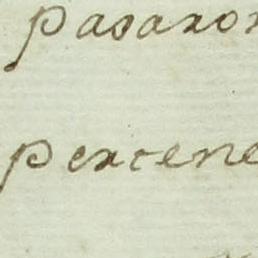 pasaron
pertene